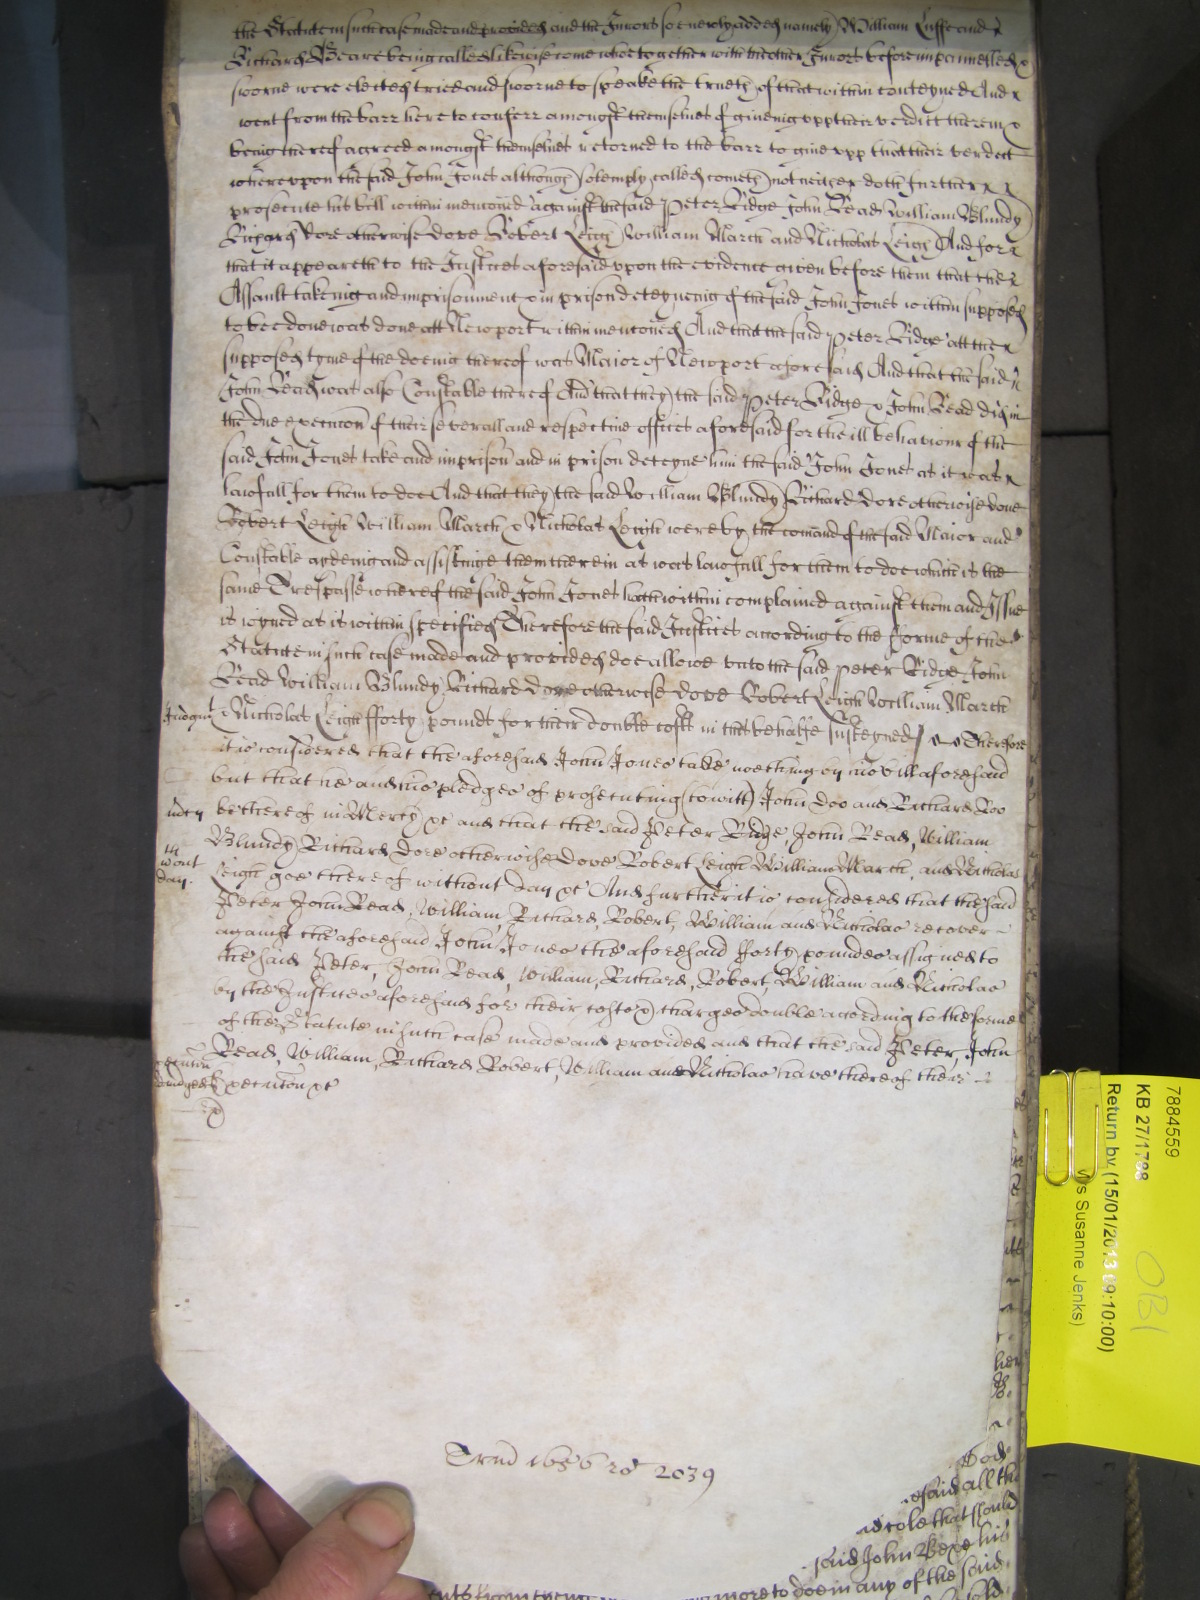 the Statute in such case made and provided and the Jurors so newly added namely William Cuffe and
Richard Weare being called likewise come whoe together with the other Jurors before impannelled &
sworne were elected tried and sworne to speake the trueth of that within conteyned And
went from the barr here to conferr amongst themselves of giveing upp their verdict therein &
being thereof agreed amongst themselves returned to the barr to give upp that their verdict
whereupon the said John Jones although solemply called cometh not neither doth further
prosecute his bill within mentioned against the said Peter Ridge John Read William Blundy
Richard Dore otherwise Dove Robert Leigh William March and Nicholas Leigh And for
that it appeareth to the Justices aforesaid upon the evidence given before them that the
Assault takeing and imprisonment & in prison deteyneing of the said John Jones within supposed
to bee done was done att Newport within mentioned And that the said Peter Ridge att the
supposed tyme of the doeing thereof was Maior of Newport aforesaid And that the said
John Read was also Constable thereof And that they the said Peter Ridge & John Read did in
the due execucion of their severall and respective offices aforesaid for the ill behaviour of the
said John Jones take and imprison and in prison deteyne him the said John Jones as it was
lawfull for them to doe And that they the said William Blundy Richard Dore otherwise Dove
Robert Leigh William March & Nicholas Leigh were by the comand of the said Maior and
Constable aydeing and assistinge them therein as was lawfull for them to doe which is the
same Trespasse whereof the said John Jones hath within complained against them and Issue
is ioyned as is within specified Therefore the said Justices according to the forme of the
Statute in such case made and provided doe allowe unto the said Peter Ridge John
Read William Blundy Richard Dore otherwise Dove Robert Leigh William March
Judgmt & Nicholas Leigh fforty pounds for their double costs in that behalfe susteyned Therefore
it is considered that the aforesaid John Jones take nothing by his bill aforesaid
but that he and his pledges of prosecuting (to witt) John Doo and Richard Roo
mercy be thereof in Mercy &c and that the said Peter Ridge John Read, William
Blundy Richard Dore otherwise Dove Robert Leigh William March, and Nicholas
wthout day. Leigh goe thereof without day &c And further it is considered that the said
Peter John Read, William, Richard, Robert, William and Nicholas recover
against the aforesaid John Jones the aforesaid fforty poundes assigned to
the said Peter, John Read, William, Richard, Robert, William and Nicholas
by the Justices aforesaid for their costes & charges double according to the forme
of the Statute in such case made and provided and that the said Peter, John
Read, William, Richard Robert, William and Nicholas have thereof their
Execution &c
Trin 1656 ro 2039
God
esaid all the
said John
more to doe in any of the said
7884559
KB 27/1788
Return by (15/01/2013 09:10:00)
Ms Susanne Jenks)
OB1